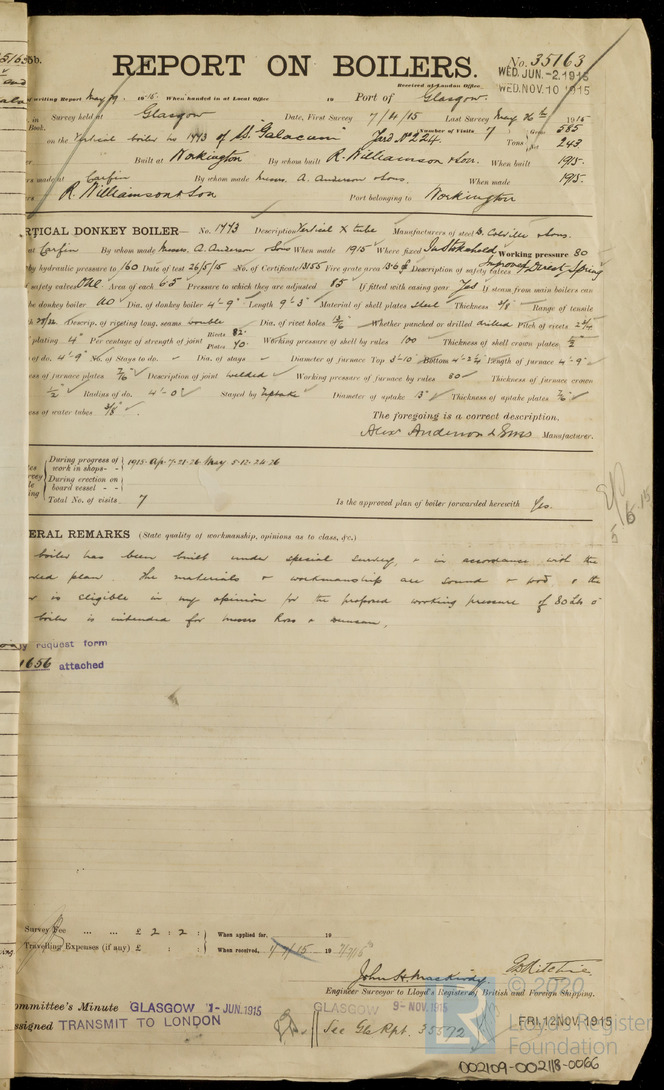 REPORT ON BOILERS.
No. 35163
Received at London Office
WED. JUN. -2 1915
WED. NOV. 10 1915
writing Report May 19 When handed in at Local Office 19 Port of Glasgow.
Survey held at Glasgow Date, First Survey 7/4/15 Last Survey May 26th 1915
Book.
on the Vertical boiler No 1773 of S.S. "Galacum" Yard No 224. Number of Visits 7 Gross 585
Tons Net 243
Built at Workington By whom built R. Williamson & Son. When built 1915.
made at Carfin By whom made Messrs. A. Anderson & Sons. When made 1915.
R. Williamson & Son Port belonging to Workington
RTICAL DONKEY BOILER— No. 1773 Description Vertical X tube Manufacturers of steel D. Colville & Sons.
at Carfin By whom made Messrs. A. Anderson & Sons When made 1915 Where fixed In Stokehold Working pressure 80
by hydraulic pressure to 160 Date of test 26/5/15 No. of Certificate 13155 Fire grate area Description of safety valves Improved Direct Spring
safety valves One Area of each Pressure to which they are adjusted 85 If fitted with easing gear Yes If steam from main boilers can
be donkey boiler No Dia. of donkey boiler 4'-9" Length 9'-3" Material of shell plates Steel Thickness 3/8" Range of tensile
Descrip. of riveting long. seams double Dia. of rivet holes 13/16" Whether punched or drilled drilled Pitch of rivets
plating 4" Per centage of strength of joint Rivets 82. Plates 70. Working pressure of shell by rules 100 Thickness of shell crown plates 1/2"
of do. 4'-9" No. of Stays to do. Dia. of stays Diameter of furnace Top 3'-10" Bottom Length of furnace 4'-9"
ess of furnace plates 7/16" Description of joint welded Working pressure of furnace by rules 80 Thickness of furnace crown
1/2" Radius of do. 4'-0" Stayed by Uptake Diameter of uptake 13" Thickness of uptake plates 7/16"
ess of water tubes 3/8"
The foregoing is a correct description,
Alexr Anderson & Sons Manufacturer.
During progress of work in shops - - 1915. Ap. 7. 21. 26. May 5. 12. 24. 26
During erection on board vessel - -
Total No. of visits 7 Is the approved plan of boiler forwarded herewith Yes.
ERAL REMARKS (State quality of workmanship, opinions as to class, &c.)
boiler has been built under special survey, & in accordance with the
plan. The materials & workmanship are sound & good, & the
is eligible in my opinion for the proposed working pressure of 80 lbs
boiler is intended for Messrs Ross & Duncan.
request form
1656 attached
Survey Fee ... ... £ 2 : 2 : When applied for. 19
Travelling Expenses (if any) £ : : When received, 19
John H. Mackirdy G. Ritchie.
Engineer Surveyor to Lloyd's Register of British and Foreign Shipping.
ommittee's Minute GLASGOW 1- JUN. 1915 GLASGOW 9- NOV. 1915 FRI. 12 NOV. 1915
ssigned TRANSMIT TO LONDON See Gls Rpt. 35572
© 2020
Lloyd's Register
Foundation
002109-002118-0066